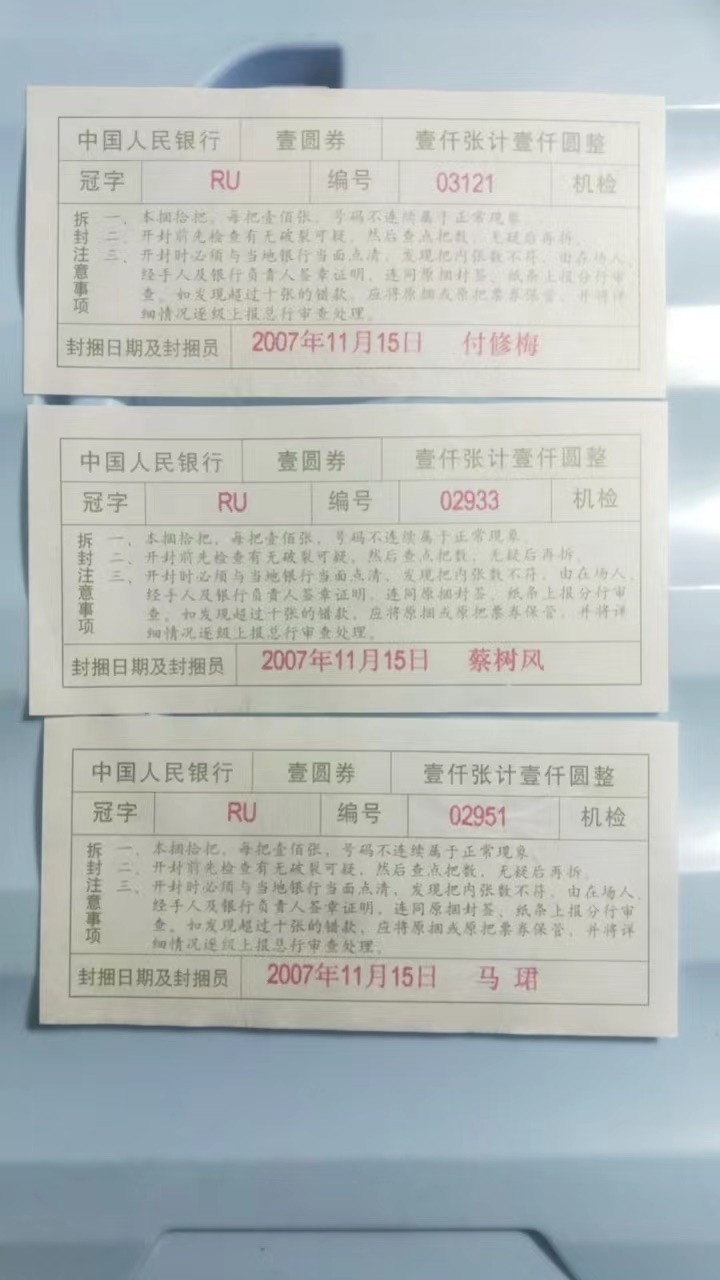 中国人民银行 壹圆券 壹仟张计壹仟圆整
冠字 RU 编号 03121 机检
拆封注意事项
一、本捆拾把，每把壹佰张，号码不连续属于正常现象。
二、开封前先检查有无破裂可疑，然后查点把数，无疑后再拆。
三、开封时必须与当地银行当面点清，发现把内张数不符，由在场人、
经手人及银行负责人签章证明，连同原捆封签、纸条上报分行审
查。如发现超过十张的错款，应将原捆或原把票券保管，并将详
细情况逐级上报总行审查处理。
封捆日期及封捆员 2007年11月15日 付修梅
中国人民银行 壹圆券 壹仟张计壹仟圆整
冠字 RU 编号 02933 机检
拆封注意事项
一、本捆拾把，每把壹佰张，号码不连续属于正常现象。
二、开封前先检查有无破裂可疑，然后查点把数，无疑后再拆。
三、开封时必须与当地银行当面点清，发现把内张数不符，由在场人、
经手人及银行负责人签章证明，连同原捆封签、纸条上报分行审
查。如发现超过十张的错款，应将原捆或原把票券保管，并将详
细情况逐级上报总行审查处理。
封捆日期及封捆员 2007年11月15日 蔡树风
中国人民银行 壹圆券 壹仟张计壹仟圆整
冠字 RU 编号 02951 机检
拆封注意事项
一、本捆拾把，每把壹佰张，号码不连续属于正常现象。
二、开封前先检查有无破裂可疑，然后查点把数，无疑后再拆。
三、开封时必须与当地银行当面点清，发现把内张数不符，由在场人、
经手人及银行负责人签章证明，连同原捆封签、纸条上报分行审
查。如发现超过十张的错款，应将原捆或原把票券保管，并将详
细情况逐级上报总行审查处理。
封捆日期及封捆员 2007年11月15日 马 珺